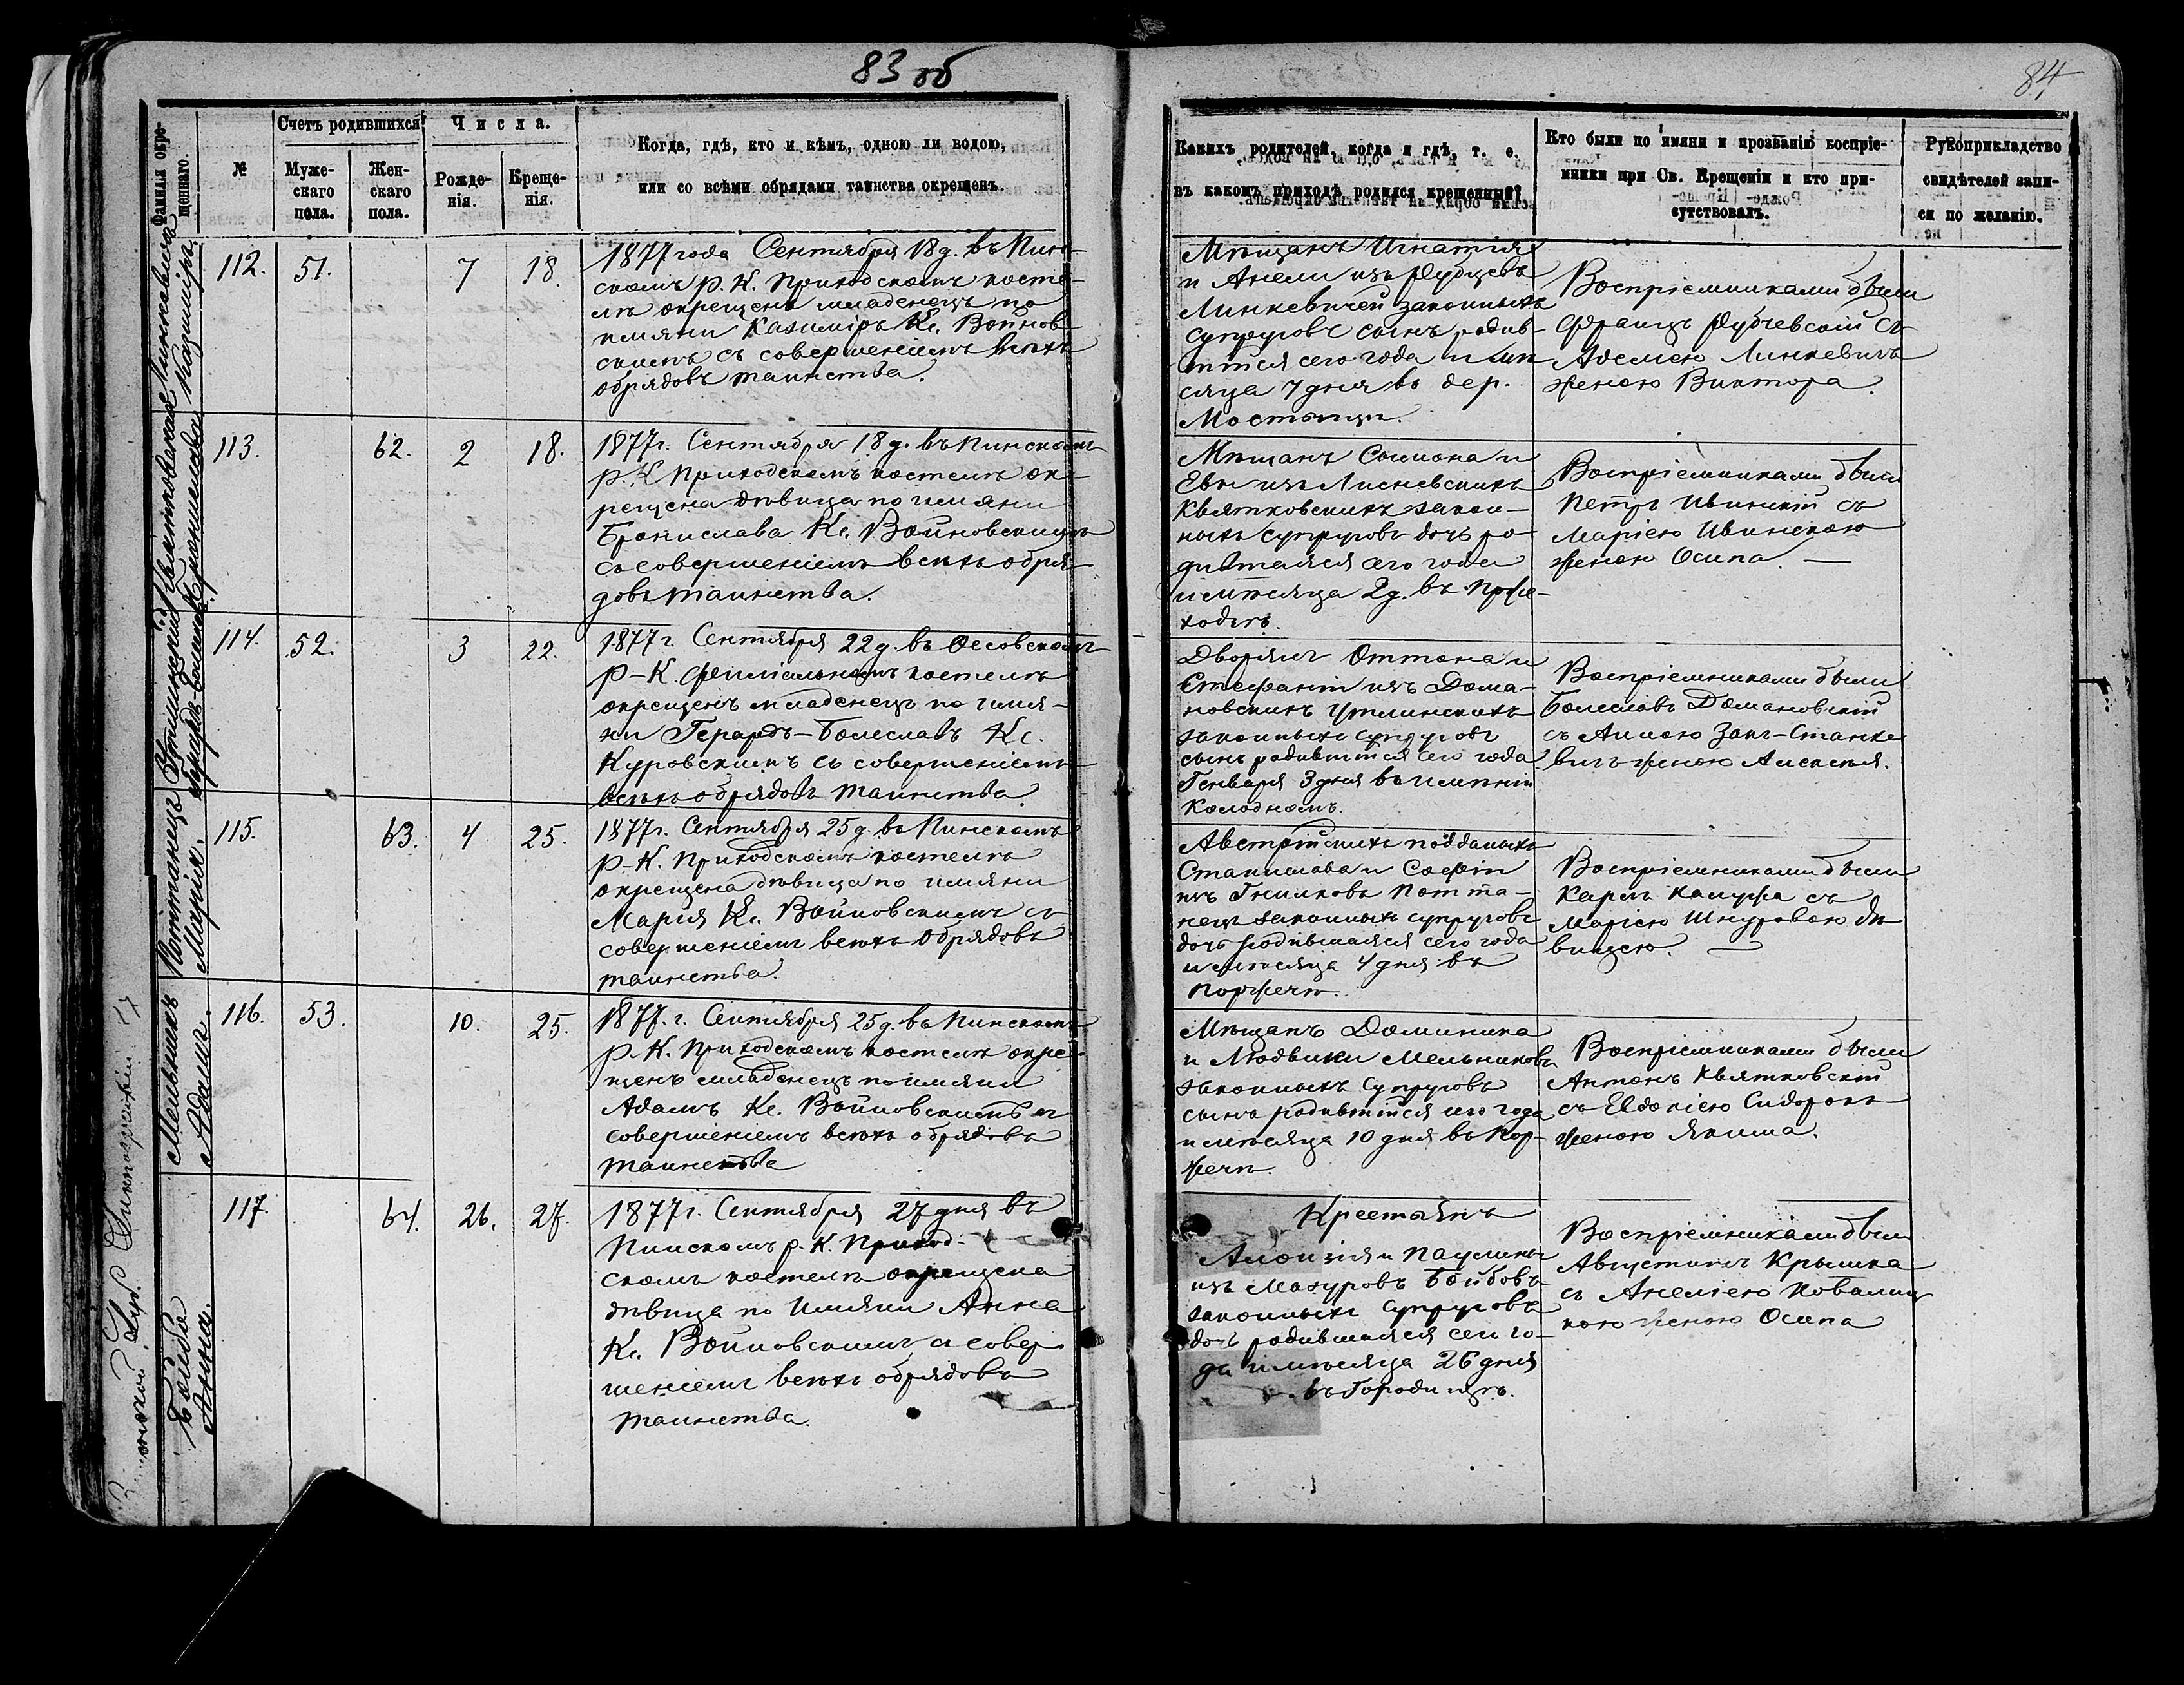 83 об
84
Фамилія окре-
щеннаго.
№
Счетъ родившихся
Муже-
скаго
пола.
Жен-
скаго
пола.
Числа.
Рожде-
нія.
Креще-
нія.
Когда, гдѣ, кто и кѣмъ, одною ли водою,
или со всѣми обрядами таинства окрещенъ.
Какихъ родителей, когда и гдѣ, т. е.
въ какомъ приходѣ родился крещенный?
Кто были по имяни и прозванію воспріе-
мники при Св. Крещеніи и кто при-
сутствовалъ.
Рукоприкладство
свидѣтелей запи-
си по желанію.
Казиміръ
112.
51.
7
18.
1877 года Сентября 18 д. въ Пин-
скомъ Р. К. Приходскомъ косте-
лѣ окрещенъ младенецъ по
имяни Казиміръ Кс. Войнов-
скимъ съ совершеніемъ всѣхъ
обрядовъ таинства.
Мѣщанъ Игнатія
и Анели изъ
Линкевичей законныхъ
супруговъ сынъ родив-
шійся сего года и мѣ-
сяца 7 дня въ дер.
Мостыщи.
Воспріемниками были
Францъ съ
Линкевичъ
женою Виктора.
Квятковская
Бронислава
113.
62.
2
18.
1877 г. Сентября 18 д. въ Пинскомъ
Р. К. Приходскомъ костелѣ ок-
рещена дѣвица по имяни
Бронислава Кс. Войновскимъ
съ совершеніемъ всѣхъ обря-
довъ таинства.
Мѣщанъ Симона и
Евы изъ Лисневскихъ
Квятковскихъ закон-
ныхъ супруговъ дочь ро-
дившаяся сего года
и мѣсяца 2 д. въ
Воспріемниками были
Петръ Ивинскій съ
Маріею Ивинскою
женою Осипа. —
114.
52.
3
22.
1877 г. Сентября 22 д. въ Оссовскомъ
Р-К. филіальномъ костелѣ
окрещенъ младенецъ по имя-
ни Герардъ-Болеславъ Кс.
Куровскимъ съ совершеніемъ
всѣхъ обрядовъ таинства.
Дворянъ Оттона и
Стефаніи изъ Дома-
новскихъ
законныхъ супруговъ
сынъ родившійся сего года
Генваря 3 дня въ имѣніи
Колодномъ.
Воспріемниками были
Болеславъ Домановскій
съ Анною Занъ-Станке
вичъ женою Алексѣя.
Поттанецъ
Марія.
115.
63.
4
25.
1877 г. Сентября 25 д. въ Пинскомъ
Р-К. Приходскомъ костелѣ
окрещена дѣвица по имяни
Марія Кс. Войновскимъ съ
совершеніемъ всѣхъ обрядовъ
таинства.
Австрійскихъ подданыхъ
Станислава и Софіи
изъ Гнилковъ Потта-
нецъ законныхъ супруговъ
дочь родившаяся сего года
и мѣсяца 4 дня въ
Порѣчьи.
Воспріемниками были
Карлъ съ
Маріею Шнуровою дѣ
вицею.
Мельникъ
Адамъ.
116.
53.
10.
25.
1877. г. Сентября 25 д. въ Пинскомъ
Р. К. Приходскомъ костелѣ окре-
щенъ младенецъ по имяни
Адамъ Кс. Войновскимъ съ
совершеніемъ всѣхъ обрядовъ
таинства
Мѣщанъ Доминика
и Людвики Мельниковъ
законныхъ супруговъ
сынъ родившійся сего года
и мѣсяца 10 дня въ Пор-
ѣчьи.
Воспріемниками были
Антонъ Квятковскій
съ Евдокіею Сидоровъ
женою Якима.
Бойба
Анна.
117.
64.
26.
27.
1877 г. Сентября 27 дня въ
Пинскомъ Р. К. Приход-
скомъ костелѣ окрещена
дѣвица по имяни Анна
Кс. Войновскимъ съ совер
шеніемъ всѣхъ обрядовъ
таинства.
Крестьянъ
Алоизія и Паулины
изъ Мазуровъ Бойбовъ
законныхъ супруговъ
дочь родившаяся сего го-
да и мѣсяца 26 дня
въ Городищѣ.
Воспріемниками были
Августинъ Крышка
съ Анеліею Ковалиц
кою женою Осипа